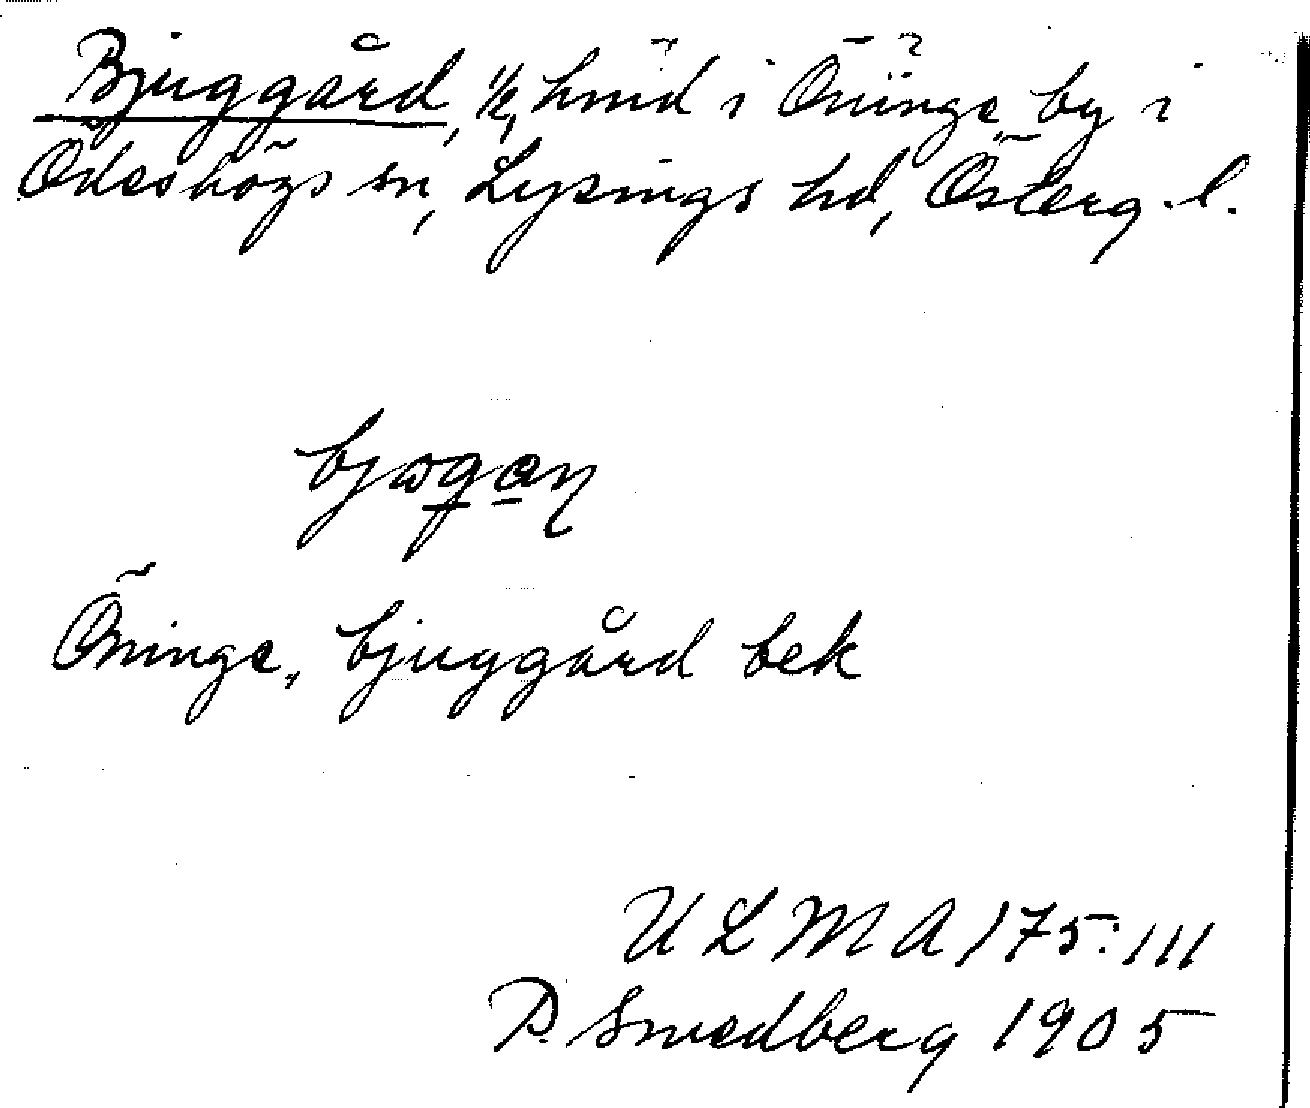 Bjuggård, 1/2, hmd i Öninge by i
Ödeshögs sn, Lysings hd, Österg. l.
Öninge, bjuggård bek
ULMA 175:111
P. Smedberg 1905